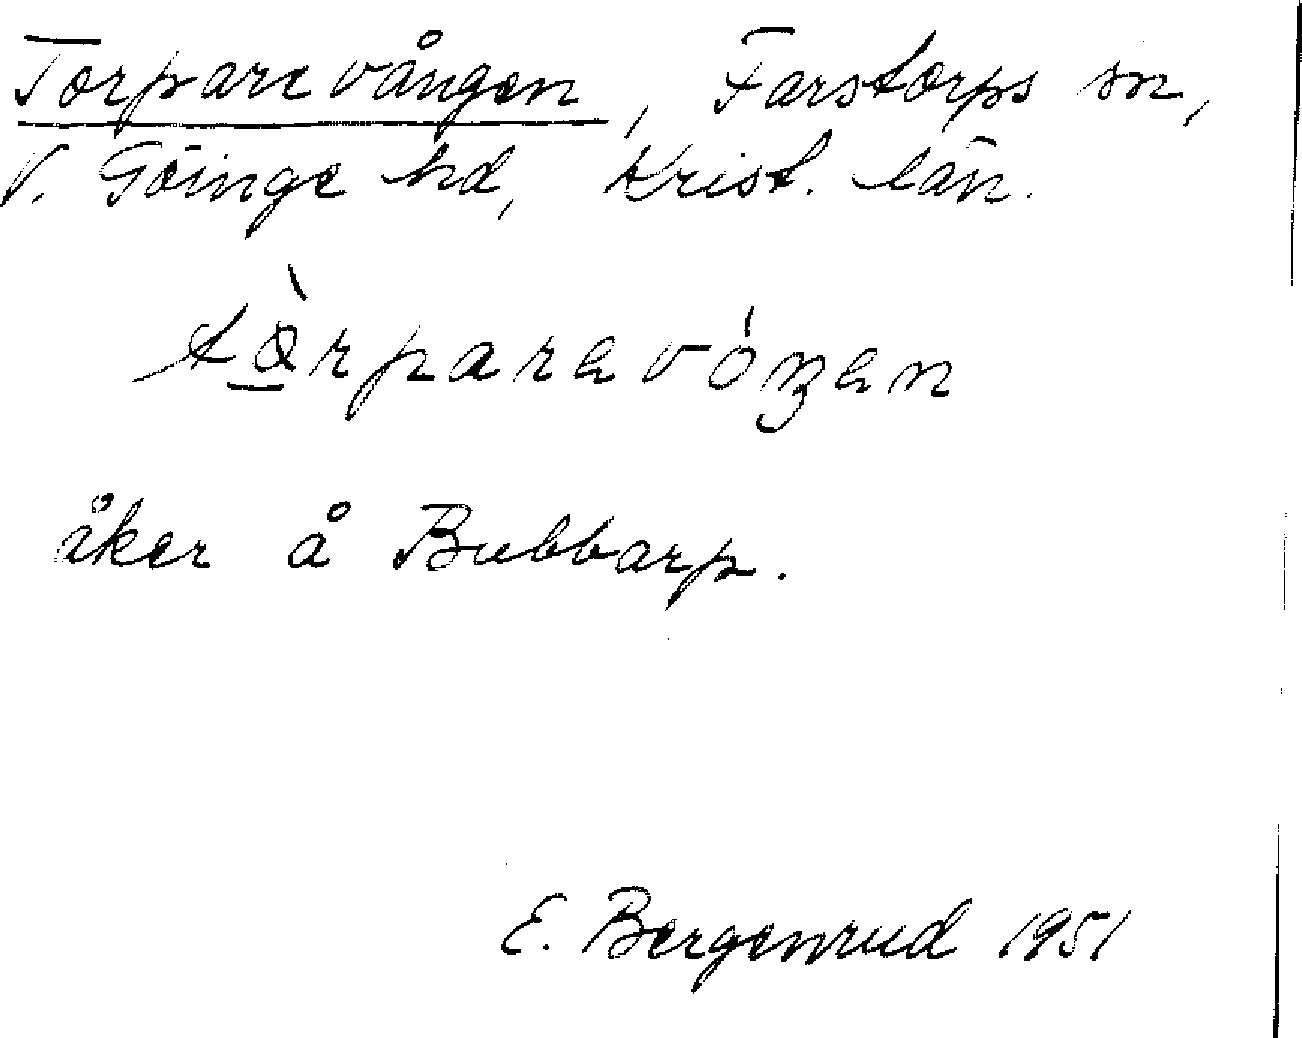 Torparevången, Farstorps sn,
V. Göinge hd, Krist. län.
tò̠rparavóŋen
åker å Bubbarp.
E. Bergenrud 1951